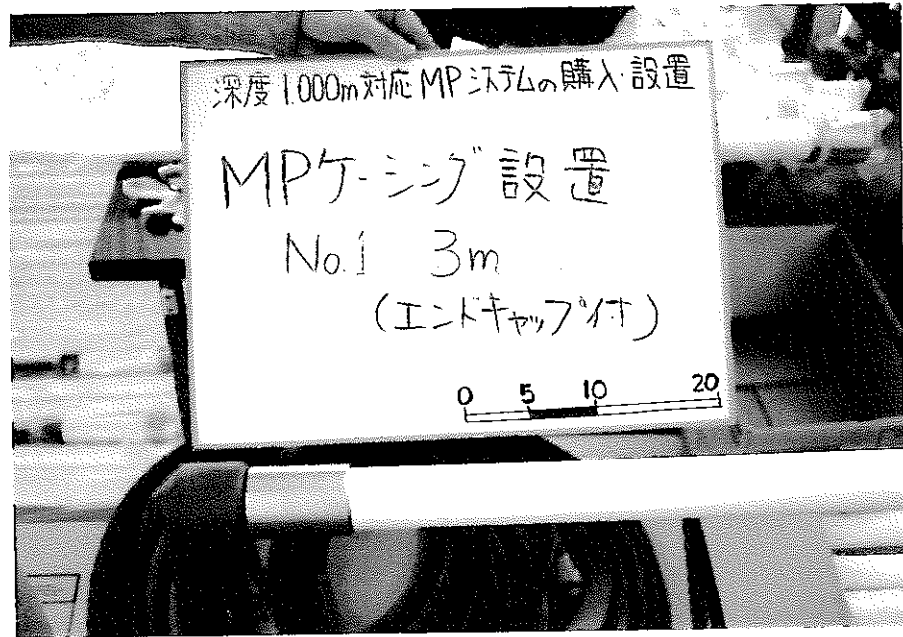 深度1.000m対応MPシステムの購入・設置
MPケーシング設置
No.1 3m
(エンドキャップ付)
0 5 10 20